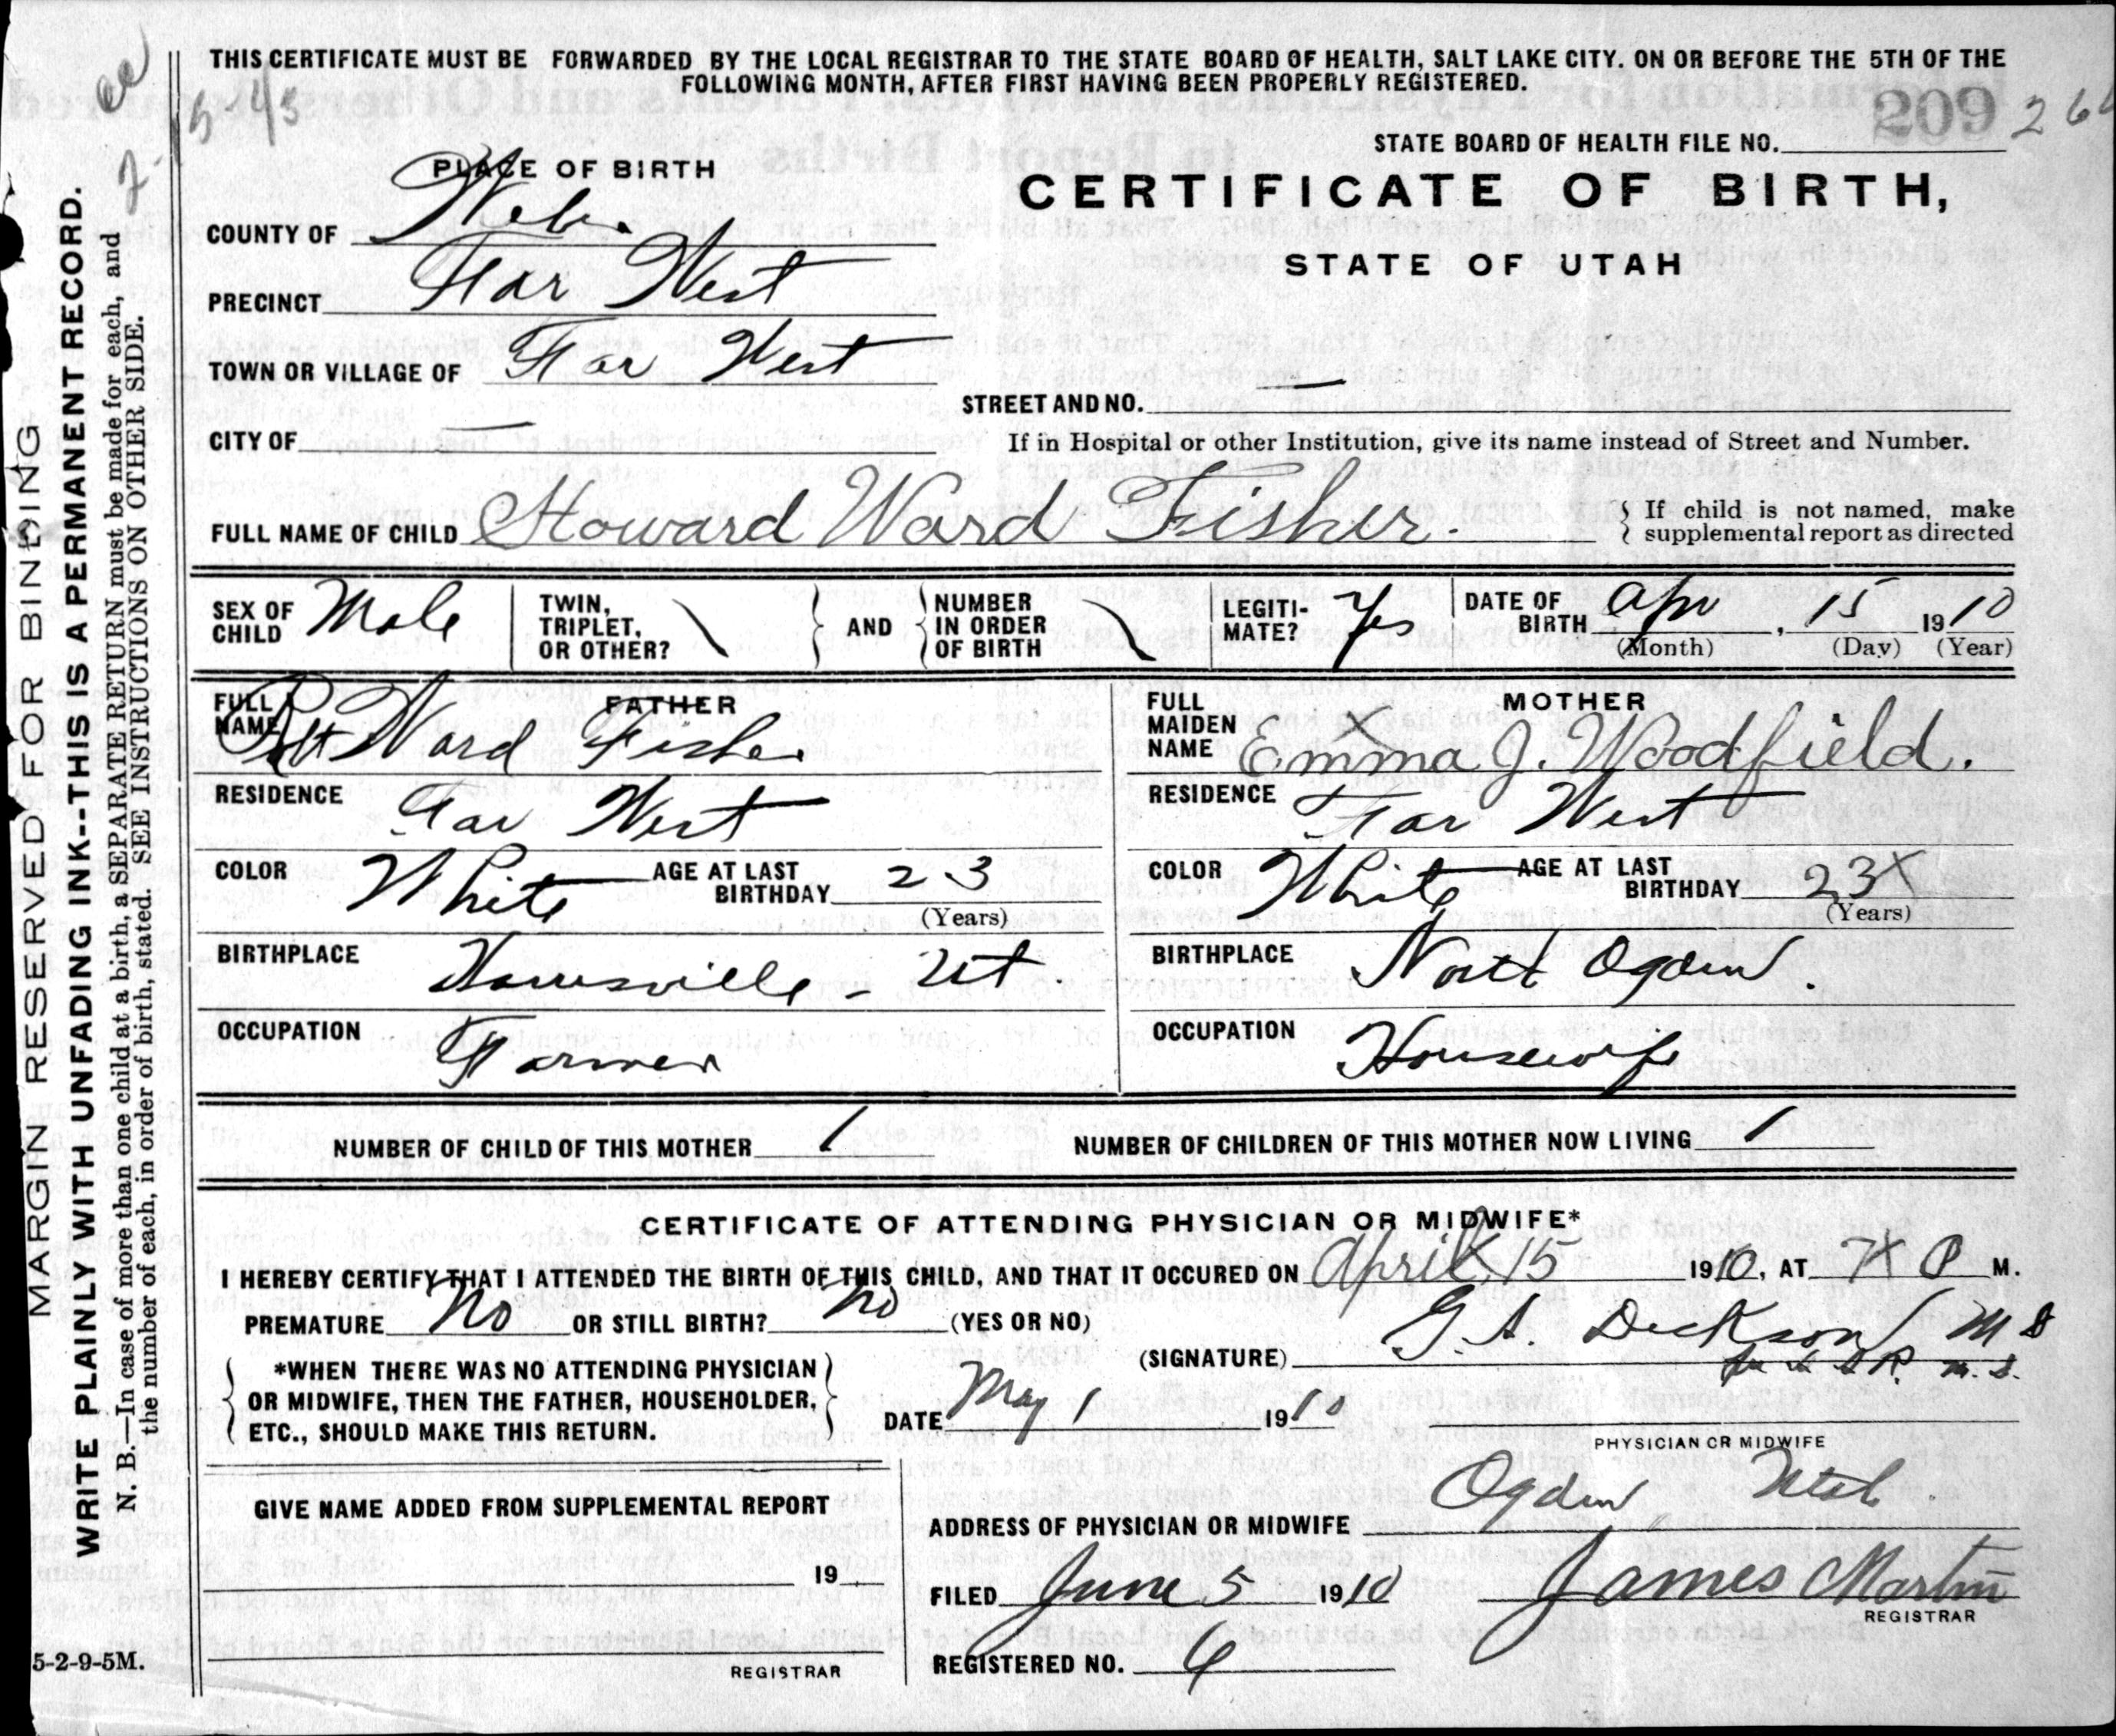 THIS CERTIFICATE MUST BE FORWARDED BY THE LOCAL REGISTRAR TO THE STATE BOARD OF HEALTH, SALT LAKE CITY. ON OR BEFORE THE 5TH OF THE
FOLLOWING MONTH, AFTER FIRST HAVING BEEN PROPERLY REGISTERED.
209
STATE BOARD OF HEALTH FILE NO.
PLACE OF BIRTH
CERTIFICATE OF BIRTH,
STATE OF UTAH
COUNTY OF Web.
PRECINCT Far West
TOWN OR VILLAGE OF Far West
STREET AND NO. —
CITY OF —
If in Hospital or other Institution, give its name instead of Street and Number.
FULL NAME OF CHILD Howard Ward Fisher.
{ If child is not named, make
supplemental report as directed
SEX OF CHILD Male
TWIN, TRIPLET, OR OTHER? \
AND
NUMBER IN ORDER OF BIRTH \
LEGITI-MATE? Yes
DATE OF BIRTH Apr, 15 1910
(Month) (Day) (Year)
FATHER
FULL NAME Rbt Ward Fisher
RESIDENCE Far West
COLOR White AGE AT LAST BIRTHDAY 23
(Years)
BIRTHPLACE Harrisville - Ut.
OCCUPATION Farmer
MOTHER
FULL MAIDEN NAME Emma J. Woodfield.
RESIDENCE Far West
COLOR White AGE AT LAST BIRTHDAY 23X
(Years)
BIRTHPLACE North Ogden.
OCCUPATION Housewife
NUMBER OF CHILD OF THIS MOTHER 1 NUMBER OF CHILDREN OF THIS MOTHER NOW LIVING 1
CERTIFICATE OF ATTENDING PHYSICIAN OR MIDWIFE*
I HEREBY CERTIFY THAT I ATTENDED THE BIRTH OF THIS CHILD, AND THAT IT OCCURED ON April 15 1910, AT 7X P M.
PREMATURE No OR STILL BIRTH? No (YES OR NO)
{ *WHEN THERE WAS NO ATTENDING PHYSICIAN
OR MIDWIFE, THEN THE FATHER, HOUSEHOLDER,
ETC., SHOULD MAKE THIS RETURN. }
(SIGNATURE) G. A. Dickson M D
DATE May 1 1910
PHYSICIAN OR MIDWIFE
GIVE NAME ADDED FROM SUPPLEMENTAL REPORT
19
REGISTRAR
ADDRESS OF PHYSICIAN OR MIDWIFE Ogden Utah.
FILED June 5 1910 James Martin
REGISTRAR
REGISTERED NO. 6
5-2-9-5M.
MARGIN RESERVED FOR BINDING
WRITE PLAINLY WITH UNFADING INK--THIS IS A PERMANENT RECORD.
N. B.—In case of more than one child at a birth, a SEPARATE RETURN must be made for each, and
the number of each, in order of birth, stated. SEE INSTRUCTIONS ON OTHER SIDE.